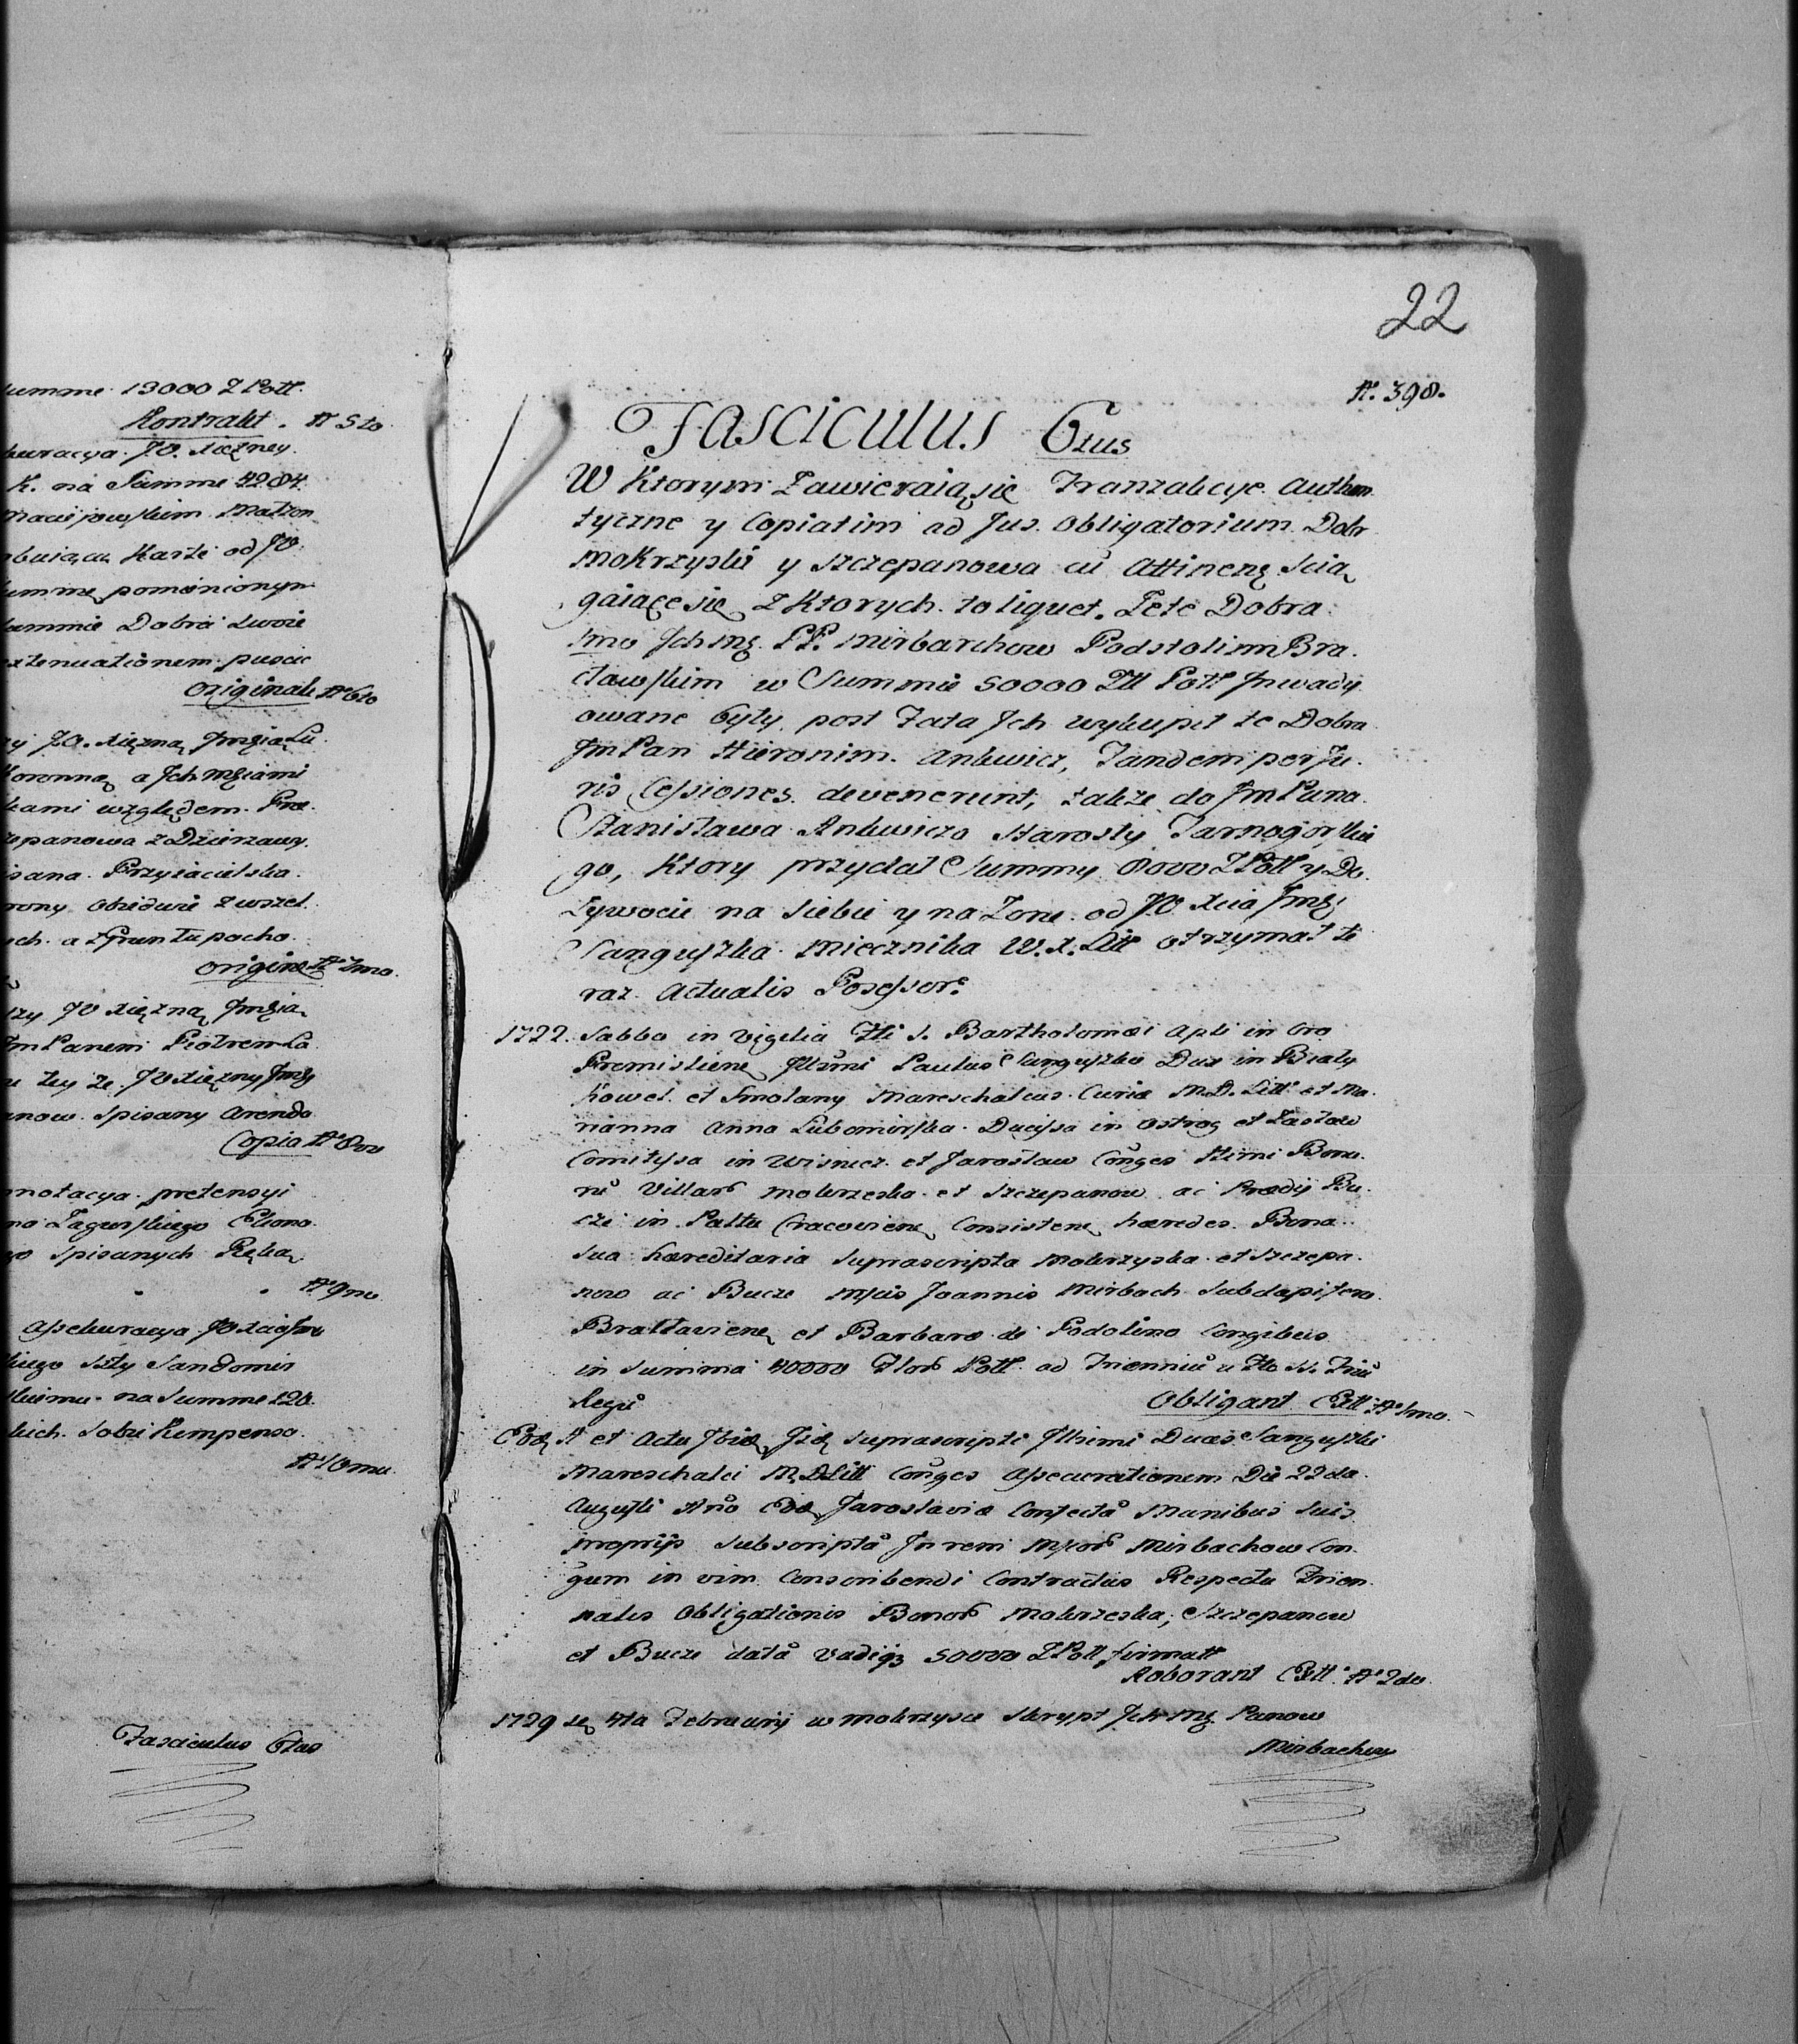 summe 13000 Z Poll.
Kontrakt. N 5to
kuracya JO. Xiężney.
K. na Summe 4284.
Macijowskim Małżon
Karte od JO.
pomienionym
summie Dobra swoie
extenuationem puscic
originale No 6to
JO. Xiężną Jmścią Lu
Koronną a Ich Mściami
kami względem Pre
zepanowa z Dzierzawy
isana Przyiacielska
rony obiedwie z wszel
ych a z Gruntu pocho
origine No 7mo.
zy JO Xiężną Jmścią
Jm Panem Piotrem La
ży ze JO Xiężny Jmś
anow spisany Arendo
Copia No 8vo
notacya pretensyi
no Zagurskiego Ekono
go spisanych Ręką
No 9no
Assekuracya JO Xcia Jm
kiego Stty Sandomir
skiemu na Summe 120
kich sobie Kompenso
No 10mu
Fasciculus 6tus
22
No. 398.
Fasciculus 6tus
W Ktorym Zawieraią się Tranzakcye Authen
tyczne y Copiatim ad Jus Obligatorium Dobr
Mokrzyski y Szczepanowa cū Attinenę Scią
gaiące się z Ktorych to liquet. Że te Dobra
1mo Ich Mę. PP. Mirbarchow Podstolim Bra
cławskim w Summie 50000 Zll Poll Inwady
owane były, post Fata Ich wykupił te Dobra
Jm Pan Hieronim Ankwicz, Tandem per Ju
ris Cessiones devenerunt, także do Jm Pana
Stanisława Ankwicza Starosty Tarnogorskie
go, Ktory przydał Summy 8000 Z Poll y Do
żywocie na siebie y na Żonę od JO Xcia Jmści
Sanguszka Miecznika W. X. Litt otrzymał te
raz Actualis Possessor.
1722. Sabbo in Vigilia Fti S. Bartholomæi Apli in Cro
Premisliene Illrmi Paulus Sanguszko Dux in Biały
Kowel et Smolany Mareschalcus Curiæ M. D. Litt et Ma
rianna Anna Lubomirska Ducissa in Ostrog et Zasław
Comitissa in Wisnicz et Jarosław Cōnges Ittmi Bono
rū Villarō Mokrzeska et Szczepanow ac Prædij Bu
cze in Palttu Cracoviene Consistene hæredes Bona
sua hæreditaria suprascripta Mokrzyska et Szczepa
now ac Bucze Mfcis Joannis Mirbach Subdapifero
Bracłaviene et Barbaræ de Podolino Congibus
in Summa 40000 Florō Poll ad Trienniū a Fto SS. Triū
Regū Obligant Extt No 1mo.
Eoḍ A et Actu Ibiḍ Iiḍ suprascripti Illrimi Duces Sanguszki
Mareschalci M. D. Litt Cōnges Assecurationem Die 22da
Augusti Año Eoḍ Jaroslaviæ Confectā Manibus suis
proprijs subscriptā In rem Mfcorō Mirbachow Con
gum in vim Conscribendi Contractus Respectu Trien
nalis Obligationis Bonorō Mokrzeska, Szczepanow
et Bucze datā Vadijq3 50000 Z Poll firmatt
Roborant Extt. No 2do
1729 4ta Februarij w Mokrzysce Skrypt Ich Mę Panow
Mirbachow